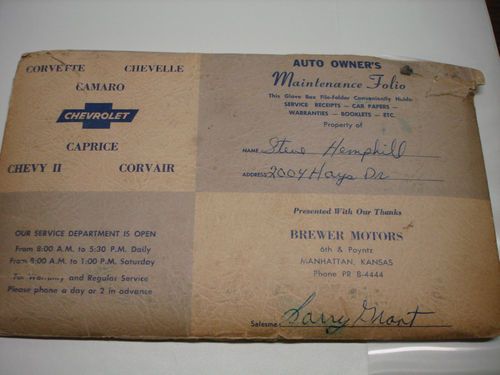 CORVETTE CHEVELLE
CAMARO
CHEVROLET
CAPRICE
CHEVY II CORVAIR
OUR SERVICE DEPARTMENT IS OPEN
From 8:00 A.M. to 5:30 P.M. Daily
From 8:00 A.M. to 1:00 P.M. Saturday
For Warranty and Regular Service
Please phone a day or 2 in advance
AUTO OWNER'S
Maintenance Folio
This Glove Box File-Folder Conveniently Holds:
SERVICE RECEIPTS — CAR PAPERS —
WARRANTIES — BOOKLETS — ETC.
Property of
NAME Steve Hemphill
ADDRESS 2004 Hays Dr
Presented With Our Thanks
BREWER MOTORS
6th & Poyntz
MANHATTAN, KANSAS
Phone PR 8-4444
Salesman Larry Grant